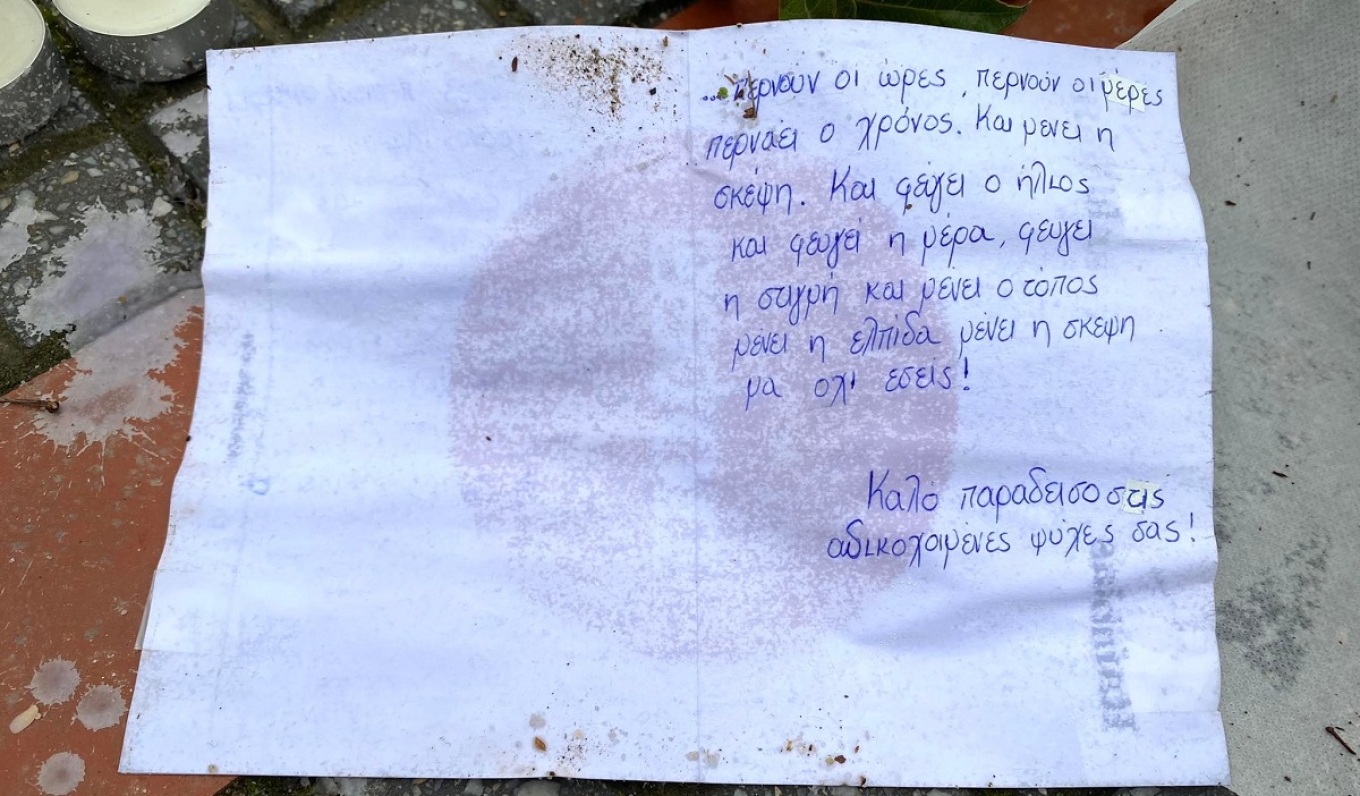 ...περνούν οι ώρες, περνούν οι μέρες
περνάει ο χρόνος. Και μενει η
σκέψη. Και φεύγει ο ήλιος
και φευγει η μέρα, φευγει
η στιγμή και μένει ο τόπος
μένει η ελπίδα μένει η σκεψη
μα οχι εσείς!
Καλό παραδεισο στις
αδικοχαμένες ψυχες σας!